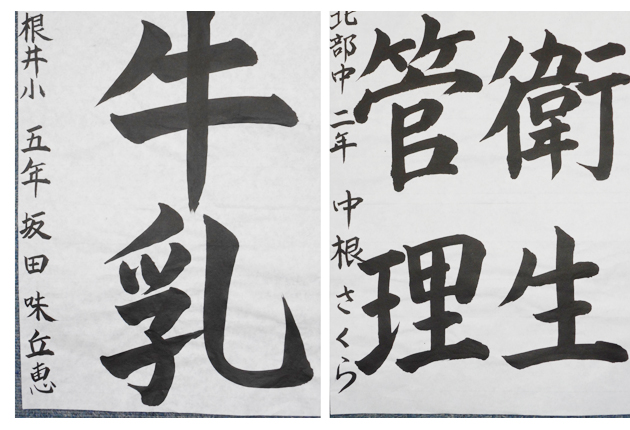 牛乳
根井小 五年 坂田 味丘恵
衛生
管理
北部中 二年 中根 さくら